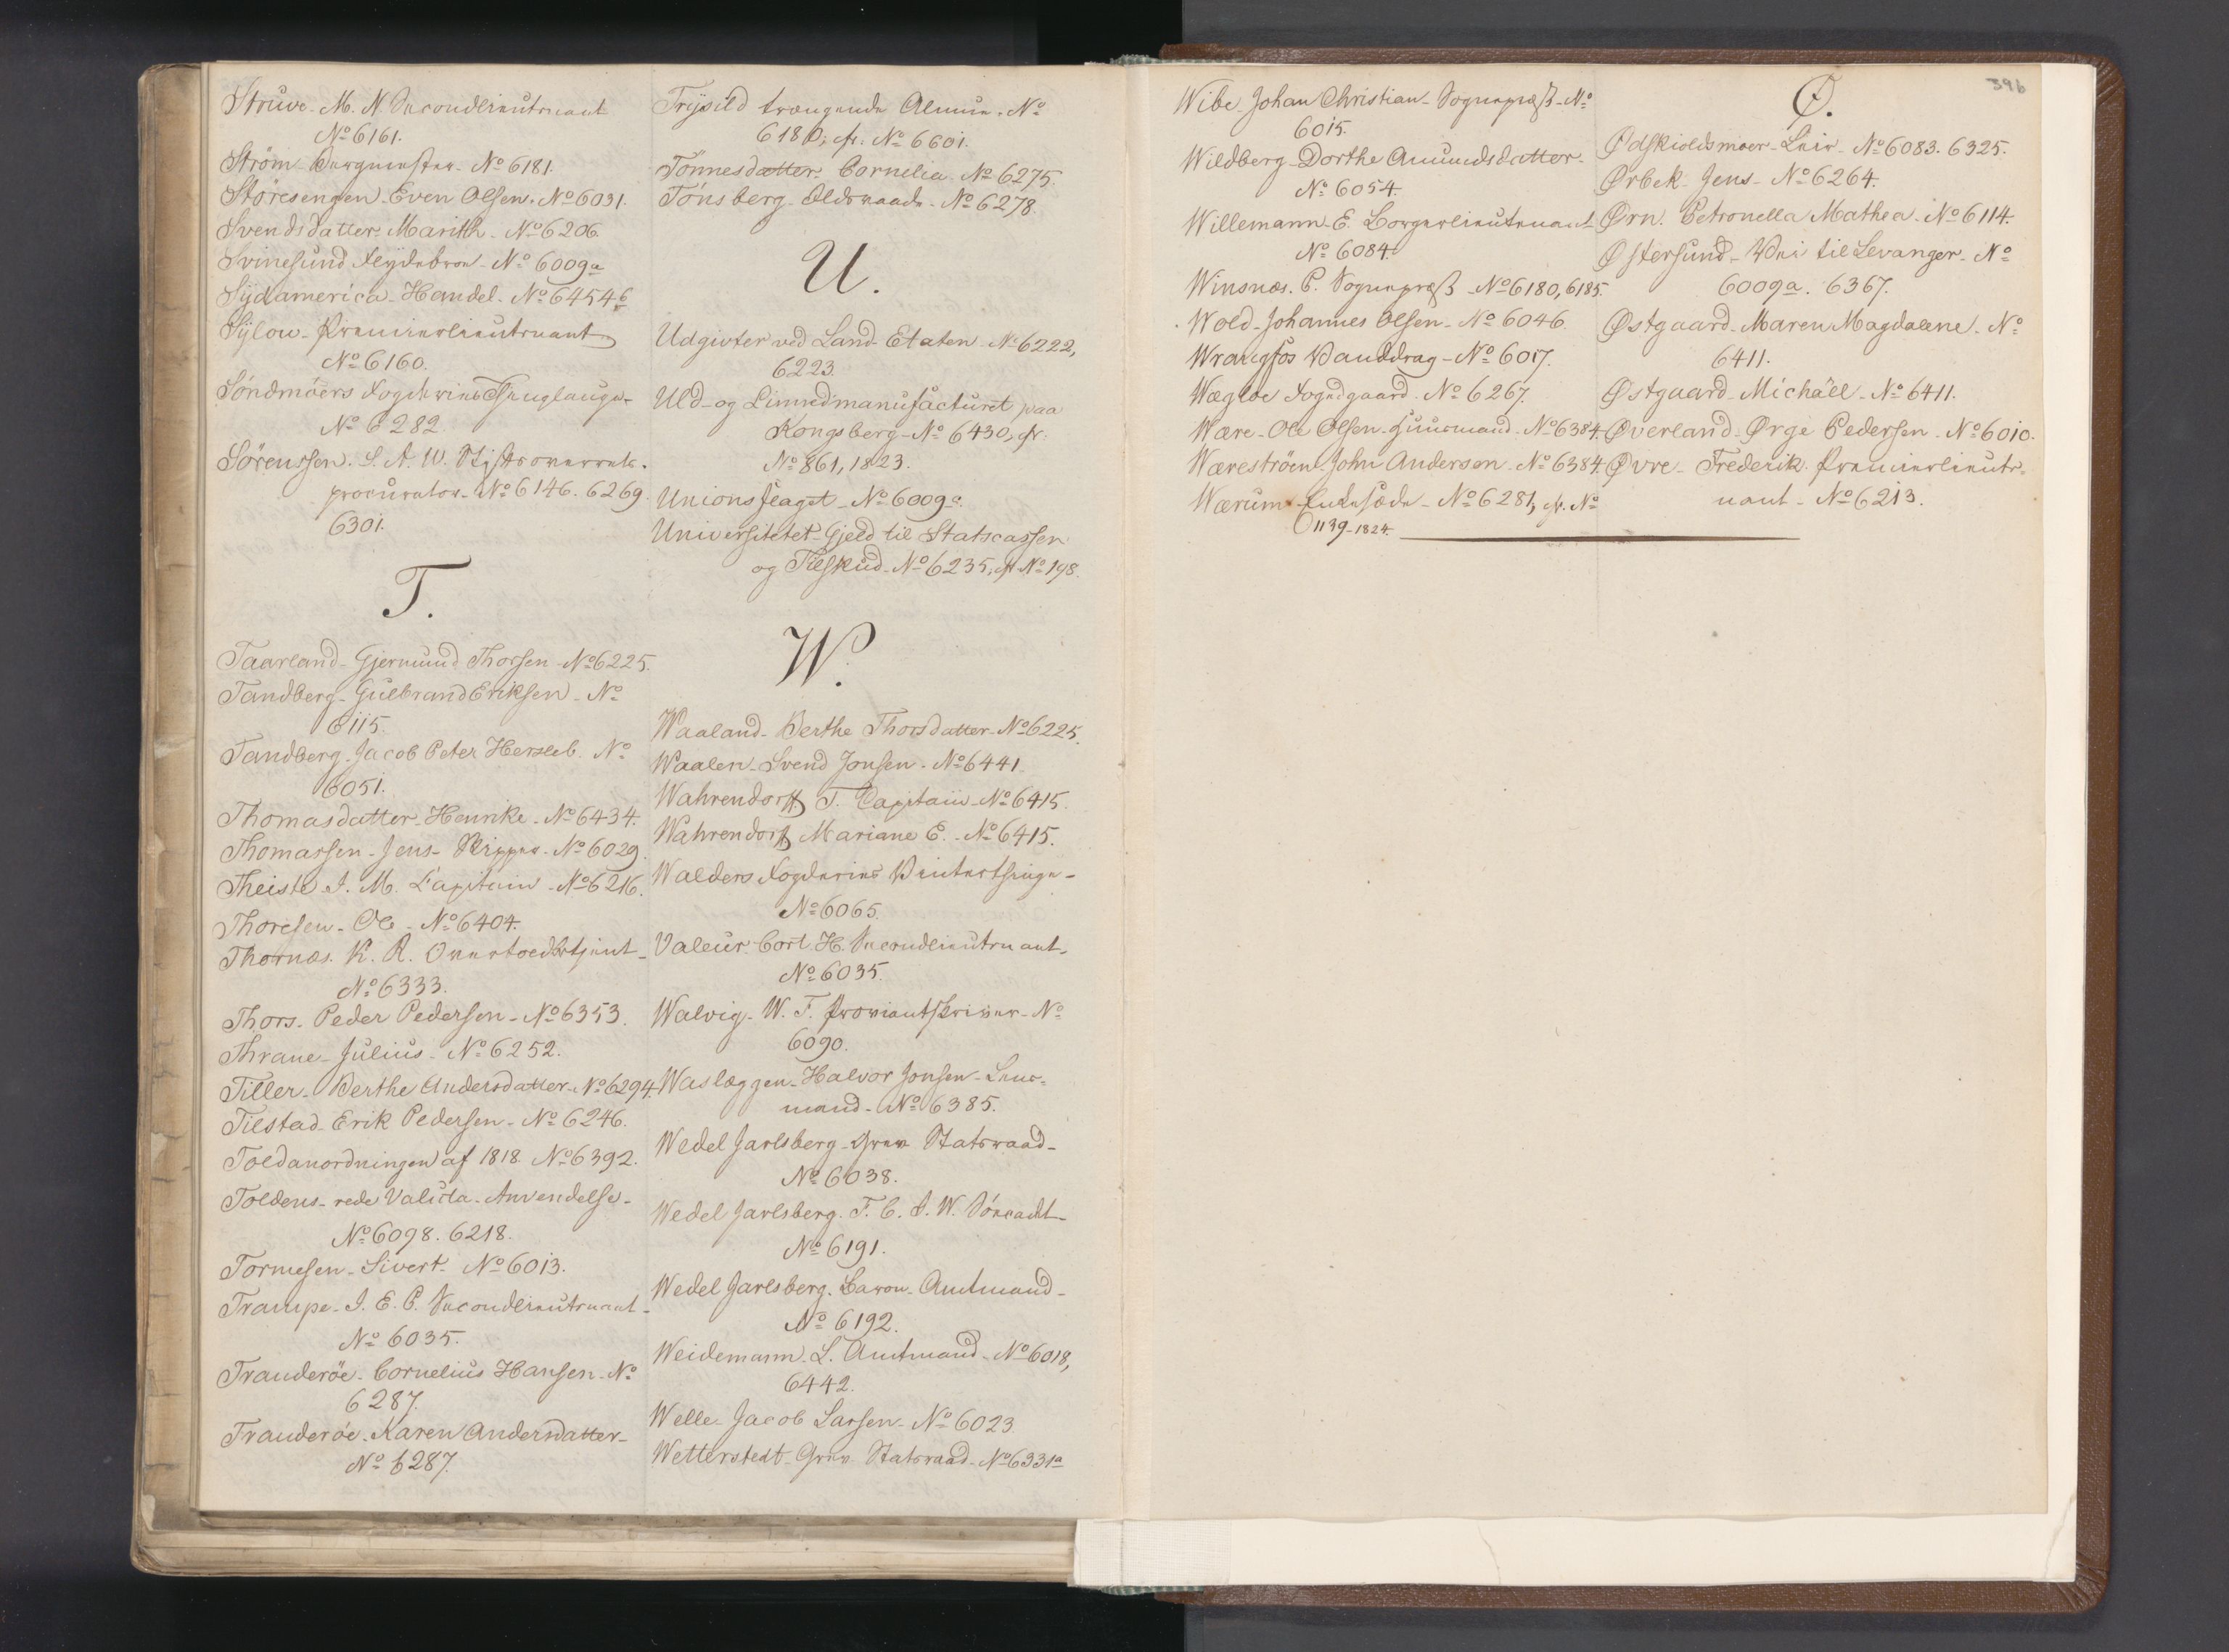 Struve - M. N. Secondlieutenant
No 6161.
Ström - Bergmester - No 6181.
Störesengen - Even Olsen - No 6031.
Svendsdatter - Marith - No 6206.
Svinesund Flydebroe - No 6009a
Sydamerica - Handel - No 6454b
Sylow - Premierlieutenant
No 6160.
Söndmöers Fogderies Thinglauge -
No 6282.
Sörenssen. S. A. W. Stiftsoverrets-
procurator - No 6146. 6269.
6301.
T.
Taarland - Gjermund Thorsen - No 6225.
Tandberg - Gulbrand Eriksen - No
6115.
Tandberg - Jacob Peter Hersleb. No
6051.
Thomasdatter - Henrike - No 6434.
Thomassen - Jens - Skipper - No 6029.
Theiste. J. M. Capitain - No 6216.
Thoresen - Ole - No 6404.
Thornæs. K. R. Overtoldbetjent -
No 6333.
Thors - Peder Pedersen - No 6353.
Thrane - Julius - No 6252.
Tiller - Berthe Andersdatter - No 6294.
Tilstad - Erik Pedersen - No 6246.
Toldanordningen af 1818. No 6392.
Toldens - rede Valuta - Anvendelse -
No 6098. 6218.
Tormesen - Sivert - No 6013.
Trampe - J. E. P. Secondlieutenant -
No 6035.
Tranderöe - Cornelius Hansen - No
6287.
Tranderöe - Karen Andersdatter -
No 6287.
Trysild trængende Almue - No
6180; cfr. No 6601.
Tönnesdatter - Cornelia - No 6275.
Tönsberg - Oldermænd - No 6278.
U.
Udgivter ved Land-Etaten - No 6222,
6223.
Uld- og Linnedmanufacturet paa
Kongsberg - No 6430, cfr.
No 861, 1823.
Unionsflaget - No 6009a.
Universitetet - Gjeld til Statscassen
og Tilskud - No 6235, cfr No 198.
W.
Waaland - Berthe Thorsdatter - No 6225.
Waalen - Svend Jonsen - No 6441.
Wahrendorff T. Capitain - No 6415.
Wahrendorff Mariane E. - No 6415.
Walders Fogderies Vinterthinge -
No 6065.
Valeur - Cort. H. Secondlieutenant -
No 6035.
Walvig - W. F. Proviantskriver - No
6090.
Waslæggen - Halvor Jonsen - Lens-
mand - No 6385.
Wedel Jarlsberg - Grev Statsraad -
No 6038.
Wedel Jarlsberg. F. C. J. W. Söecadet -
No 6191.
Wedel Jarlsberg. Baron - Amtmand -
No 6192.
Weidemann - L. Amtmand - No 6018,
6442.
Welle - Jacob Larsen - No 6023
Wetterstedt - Grev Statsraad - No 6331a
396
Wibe Johan Christian - Sognepræst - No
6015.
Wildberg - Dorthe Amundsdatter -
No 6054.
Willemann - E. Borgerlieutenant
No 6084.
Winsnæs. P. Sognepræst - No 6180, 6185.
Wold - Johannes Olsen - No 6046.
Wrangfos Vanddrag - No 6017.
Wægloe Fogedgaard - No 6267.
Wære - Ole Olsen - Huusmand - No 6384.
Wæreströen John Anderson - No 6384.
Wærum Enkesæde - No 6281, cfr. No
1139 - 1824.
Ø.
Ødskioldsmoer - Leir - No 6083. 6325.
Ørbek - Jens - No 6264.
Ørn. Petronella Mathea - No 6114.
Østersund - Vei til Levanger - No
6009a. 6367.
Østgaard - Maren Magdalene - No
6411.
Østgaard - Michäel - No 6411.
Øverland - Ørge Pedersen - No 6010.
Øvre - Frederik Premierlieute-
nant - No 6213.